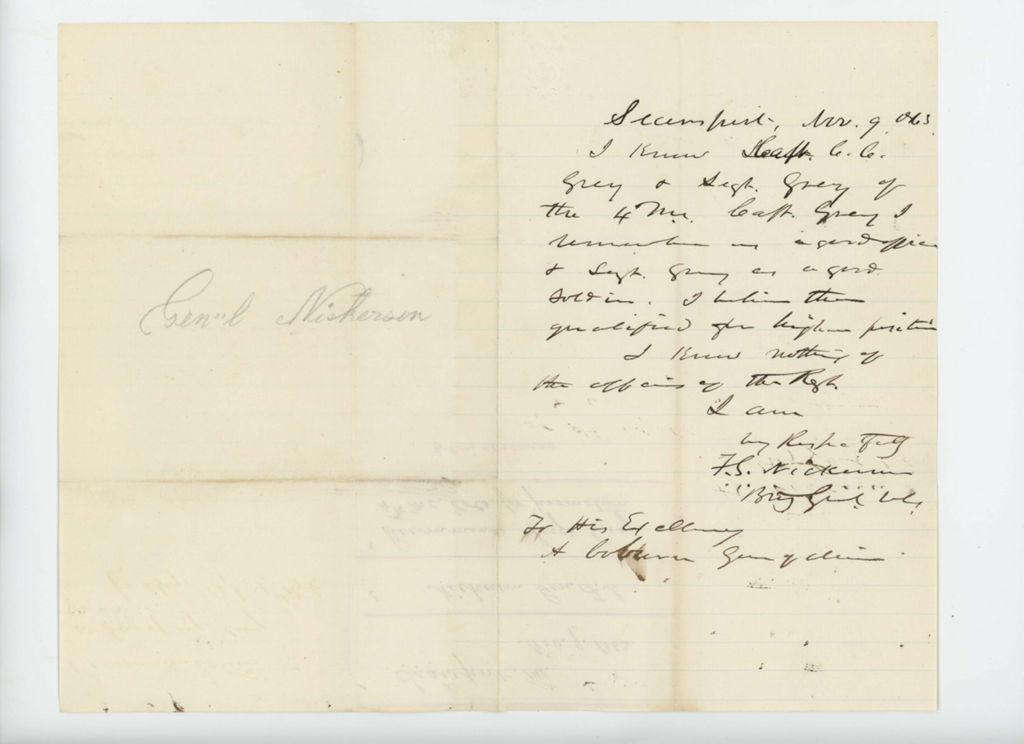 Gen'l Nickerson
Searsport, Nov. 9, 1863.
I know Capt. C.C.
Grey & Sergt. Grey of
the 4 Me. Capt. Grey I
remember as a good officer
& Sergt. Grey as a good
soldier. I believe them
qualified for higher position
I know nothing of
the affairs of the Regt.
I am
very Respectfully
F.S. Nickerson
Brig Genl. Vols.
To His Excellency
A Coburn Gov of Maine